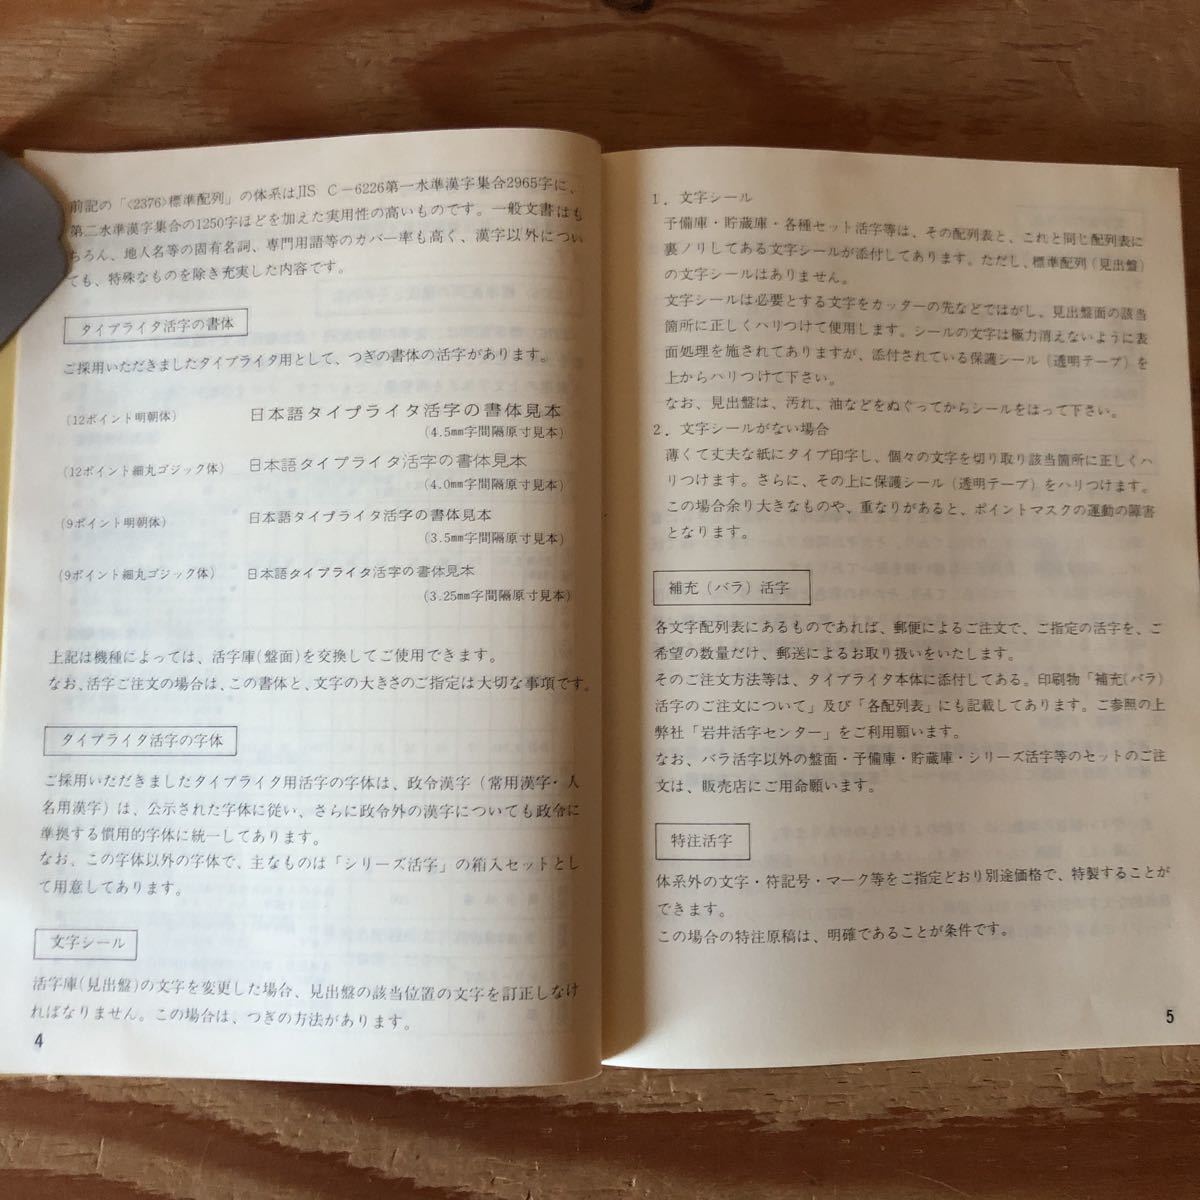 前記の「〈2376〉標準配列」の体系はJIS C－6226第一水準漢字集合2965字に、
第二水準漢字集合の1250字ほどを加えた実用性の高いものです。一般文書はも
ちろん、地人名等の固有名詞、専門用語等のカバー率も高く、漢字以外につい
ても、特殊なものを除き充実した内容です。
タイプライタ活字の書体
ご採用いただきましたタイプライタ用として、つぎの書体の活字があります。
(12ポイント明朝体) 日本語タイプライタ活字の書体見本
(4.5㎜字間隔原寸見本)
(12ポイント細丸ゴジック体) 日本語タイプライタ活字の書体見本
(4.0㎜字間隔原寸見本)
(9ポイント明朝体) 日本語タイプライタ活字の書体見本
(3.5㎜字間隔原寸見本)
(9ポイント細丸ゴジック体) 日本語タイプライタ活字の書体見本
(3.25㎜字間隔原寸見本)
上記は機種によっては、活字庫(盤面)を交換してご使用できます。
なお、活字ご注文の場合は、この書体と、文字の大きさのご指定は大切な事項です。
タイプライタ活字の字体
ご採用いただきましたタイプライタ用活字の字体は、政令漢字（常用漢字・人
名用漢字）は、公示された字体に従い、さらに政令外の漢字についても政令に
準拠する慣用的字体に統一してあります。
なお、この字体以外の字体で、主なものは「シリーズ活字」の箱入セットとし
て用意してあります。
文字シール
活字庫(見出盤)の文字を変更した場合、見出盤の該当位置の文字を訂正しなけ
ればなりません。この場合は、つぎの方法があります。
4
1．文字シール
予備庫・貯蔵庫・各種セット活字等は、その配列表と、これと同じ配列表に
裏ノリしてある文字シールが添付してあります。ただし、標準配列(見出盤)
の文字シールはありません。
文字シールは必要とする文字をカッターの先などではがし、見出盤面の該当
箇所に正しくハリつけて使用します。シールの文字は極力消えないように表
面処理を施されてありますが、添付されている保護シール（透明テープ）を
上からハリつけて下さい。
なお、見出盤は、汚れ、油などをぬぐってからシールをはって下さい。
2．文字シールがない場合
薄くて丈夫な紙にタイプ印字し、個々の文字を切り取り該当箇所に正しくハ
リつけます。さらに、その上に保護シール（透明テープ）をハリつけます。
この場合余り大きなものや、重なりがあると、ポイントマスクの運動の障害
となります。
補充（バラ）活字
各文字配列表にあるものであれば、郵便によるご注文で、ご指定の活字を、ご
希望の数量だけ、郵送によるお取り扱いをいたします。
そのご注文方法等は、タイプライタ本体に添付してある。印刷物「補充(バラ)
活字のご注文について」及び「各配列表」にも記載してあります。ご参照の上
弊社「岩井活字センター」をご利用願います。
なお、バラ活字以外の盤面・予備庫・貯蔵庫・シリーズ活字等のセットのご注
文は、販売店にご用命願います。
特注活字
体系外の文字・符記号・マーク等をご指定どおり別途価格で、特製することが
できます。
この場合の特注原稿は、明確であることが条件です。
5